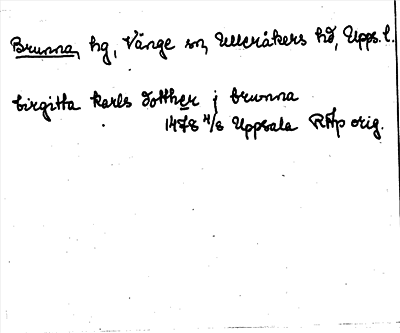 Brunna, hg, Vänge sn, Ulleråkers hd, Upps. l.
birgitta karls dotther j brunna
1478 4/8 Uppsala RAp orig.